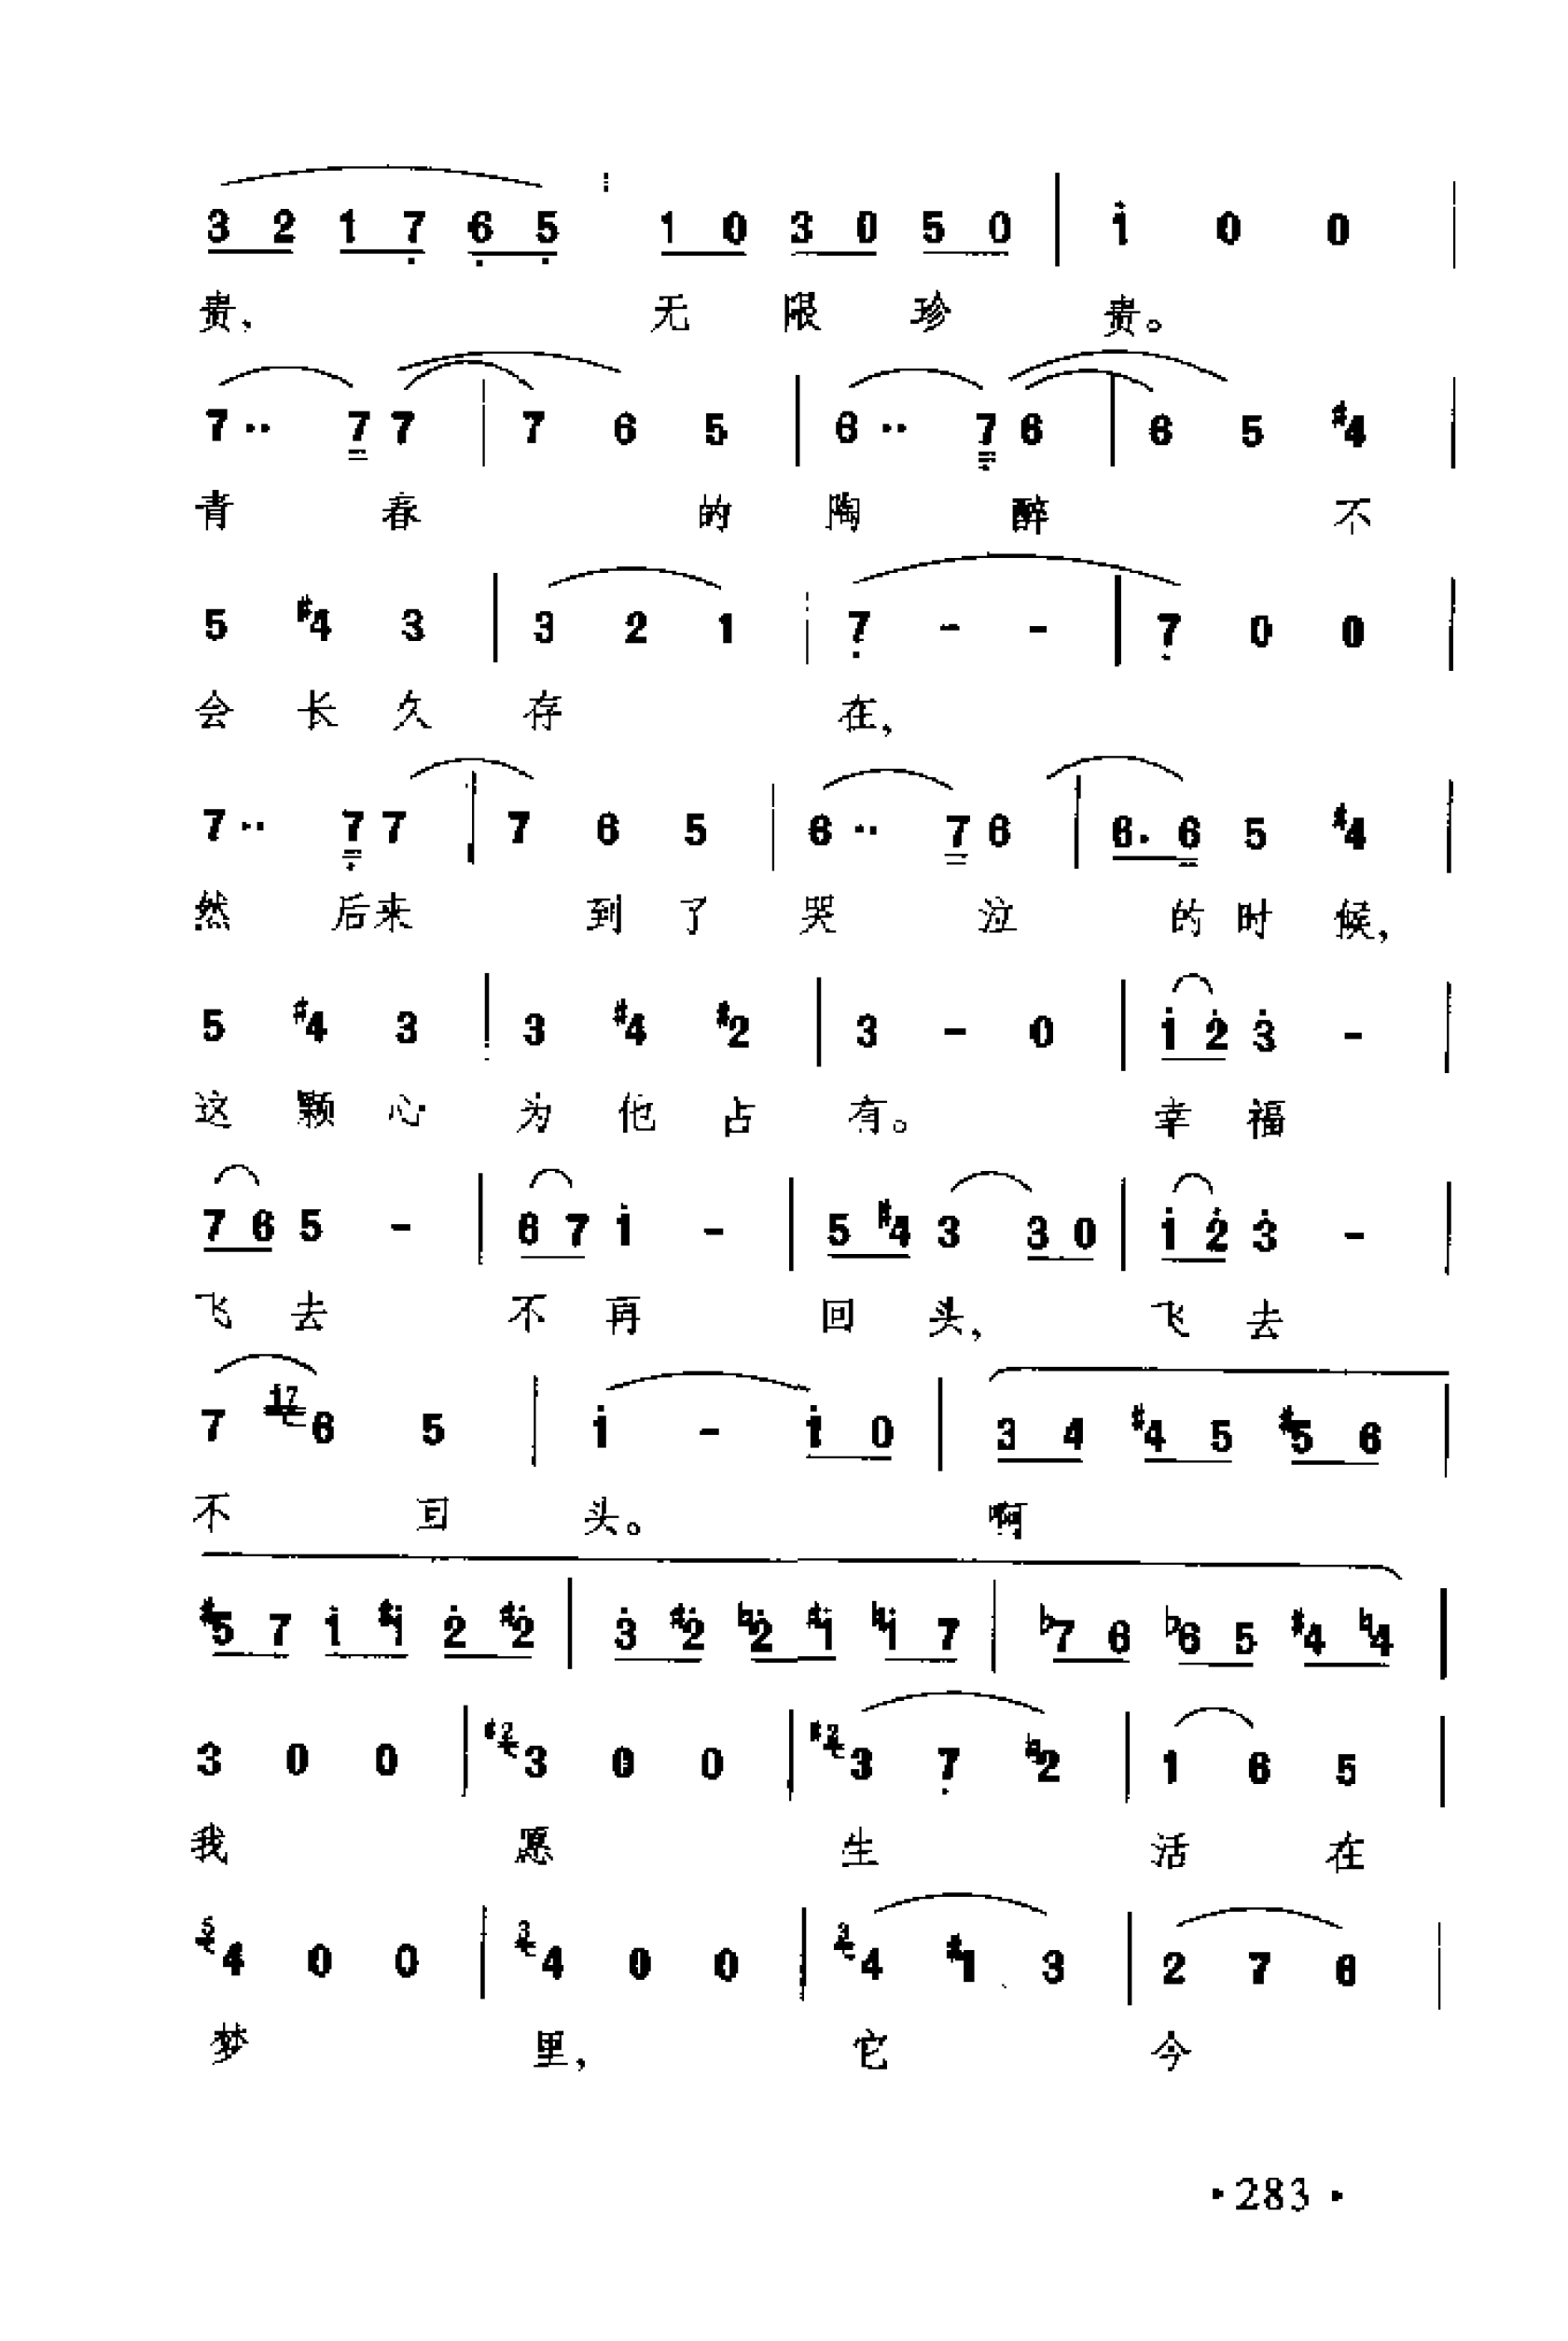 3 2 1 7 6 5 1 0 3 0 5 0 | 1 0 0 |
贵, 无 限 珍 贵。
7·· 7 7 | 7 6 5 | 6·· 7 6 | 6 5 #4 |
青 春 的 陶 醉 不
5 #4 3 | 3 2 1 | 7 - - | 7 0 0 |
会 长 久 存 在,
7·· 7 7 | 7 6 5 | 6·· 7 6 | 6· 6 5 #4 |
然 后来 到 了 哭 泣 的 时 候,
5 #4 3 | 3 #4 #2 | 3 - 0 | 1 2 3 - |
这 颗 心 为 他 占 有。 幸 福
7 6 5 - | 6 7 1 - | 5 #4 3 3 0 | 1 2 3 - |
飞 去 不 再 回 头, 飞 去
7 17 6 5 | 1 - 1 0 | 3 4 #4 5 #5 6 |
不 回 头。 啊
#5 7 1 #1 2 #2 | 3 #2 ♮2 #1 ♮1 7 | ♭7 6 ♭6 5 #4 ♮4 |
3 0 0 | #2 3 0 0 | #2 3 7 ♮2 | 1 6 5 |
我 愿 生 活 在
5 4 0 0 | 3 4 0 0 | 3 4 #1 3 | 2 7 6 |
梦 里, 它 今
·283·